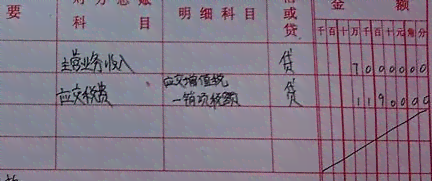 要 科 目 明细科目 或 贷 金 额
千百十万千百十元角分
主营业务收入 贷 7000000
应交税费 应交增值税 贷 1190000
—销项税额